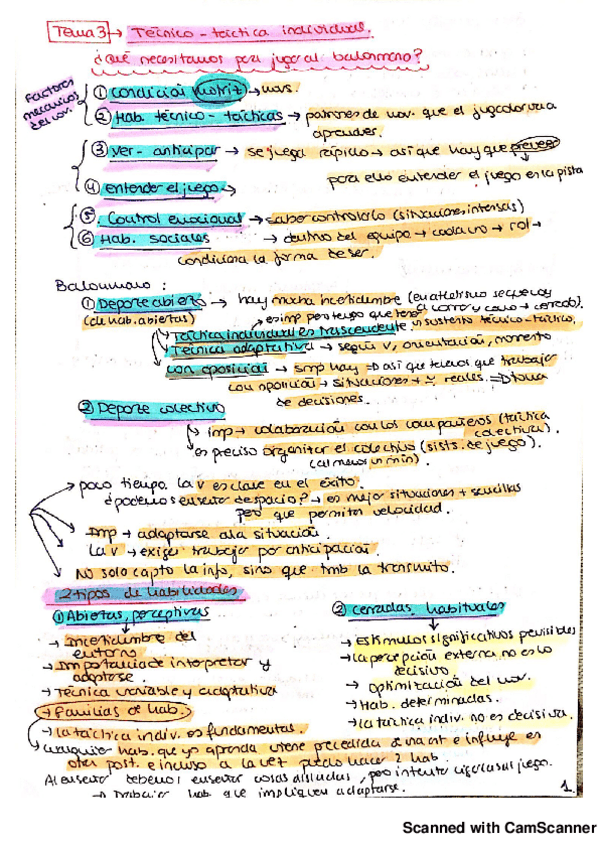 Tema 3 → Técnico-táctica individual.
¿Qué necesitamos para jugar al balonmano?
Factores mecánicos del mov.
① Condición motriz → movs.
② Hab. técnico-tácticas → patrones de mov. que el jugador va a
aprender.
③ Ver-anticipar → se juega rápido → así que hay que preveer
para ello entender el juego en la pista
④ entender el juego →
⑤ Control emocional → saber controlarlo (situaciones intensas)
⑥ Hab. sociales → dentro del equipo → cada uno → rol →
condiciona la forma de ser.
Balonmano:
① Deporte abierto → hay mucha incertidumbre (en atletismo sé que voy
a correr y como → cerrado).
(de hab. abiertas)
→ es imp pq tengo que tener un sustento técnico-táctico.
Táctica individual es trascendente
Técnica adaptativa → según v, orientación, momento
con oposición → smp hay ⇒ así que tenemos que trabajar
con oposición → situaciones + reales. ⇒ toma
de decisiones.
② Deporte colectivo
→ imp → colaboración con los compañeros (táctica
colectiva).
→ es preciso organizar el colectivo (sists. de juego).
(al menos un mín).
poco tiempo. La v es clave en el éxito.
¿podemos enseñar despacio? → es mejor situaciones + sencillas
pero que permitan velocidad.
Imp → adaptarse a la situación.
La v → exige: trabajar por anticipación.
No solo capto la info, sino que tmb la transmito.
2 tipos de habilidades
① Abiertas, perceptivas
→ Incertidumbre del
entorno
→ Importancia de interpretar y
adaptarse.
→ Técnica variable y adaptativa
→ Familias de hab.
→ la táctica indiv. es fundamentas.
② cerradas, habituales
→ Estímulos significativos previsibles
→ la percepción externa no es lo
decisivo
→ optimización del mov.
→ Hab. determinadas.
→ la táctica indiv. no es decisiva.
→ cualquier hab. que yo aprenda viene precedida de una ant e influye en
otra post. e incluso a la vez puedo hacer 2 hab.
Al enseñar debemos enseñar cosas aisladas, pero intentar al juego.
→ Trabajar hab que impliquen adaptarse.
1
Scanned with CamScanner